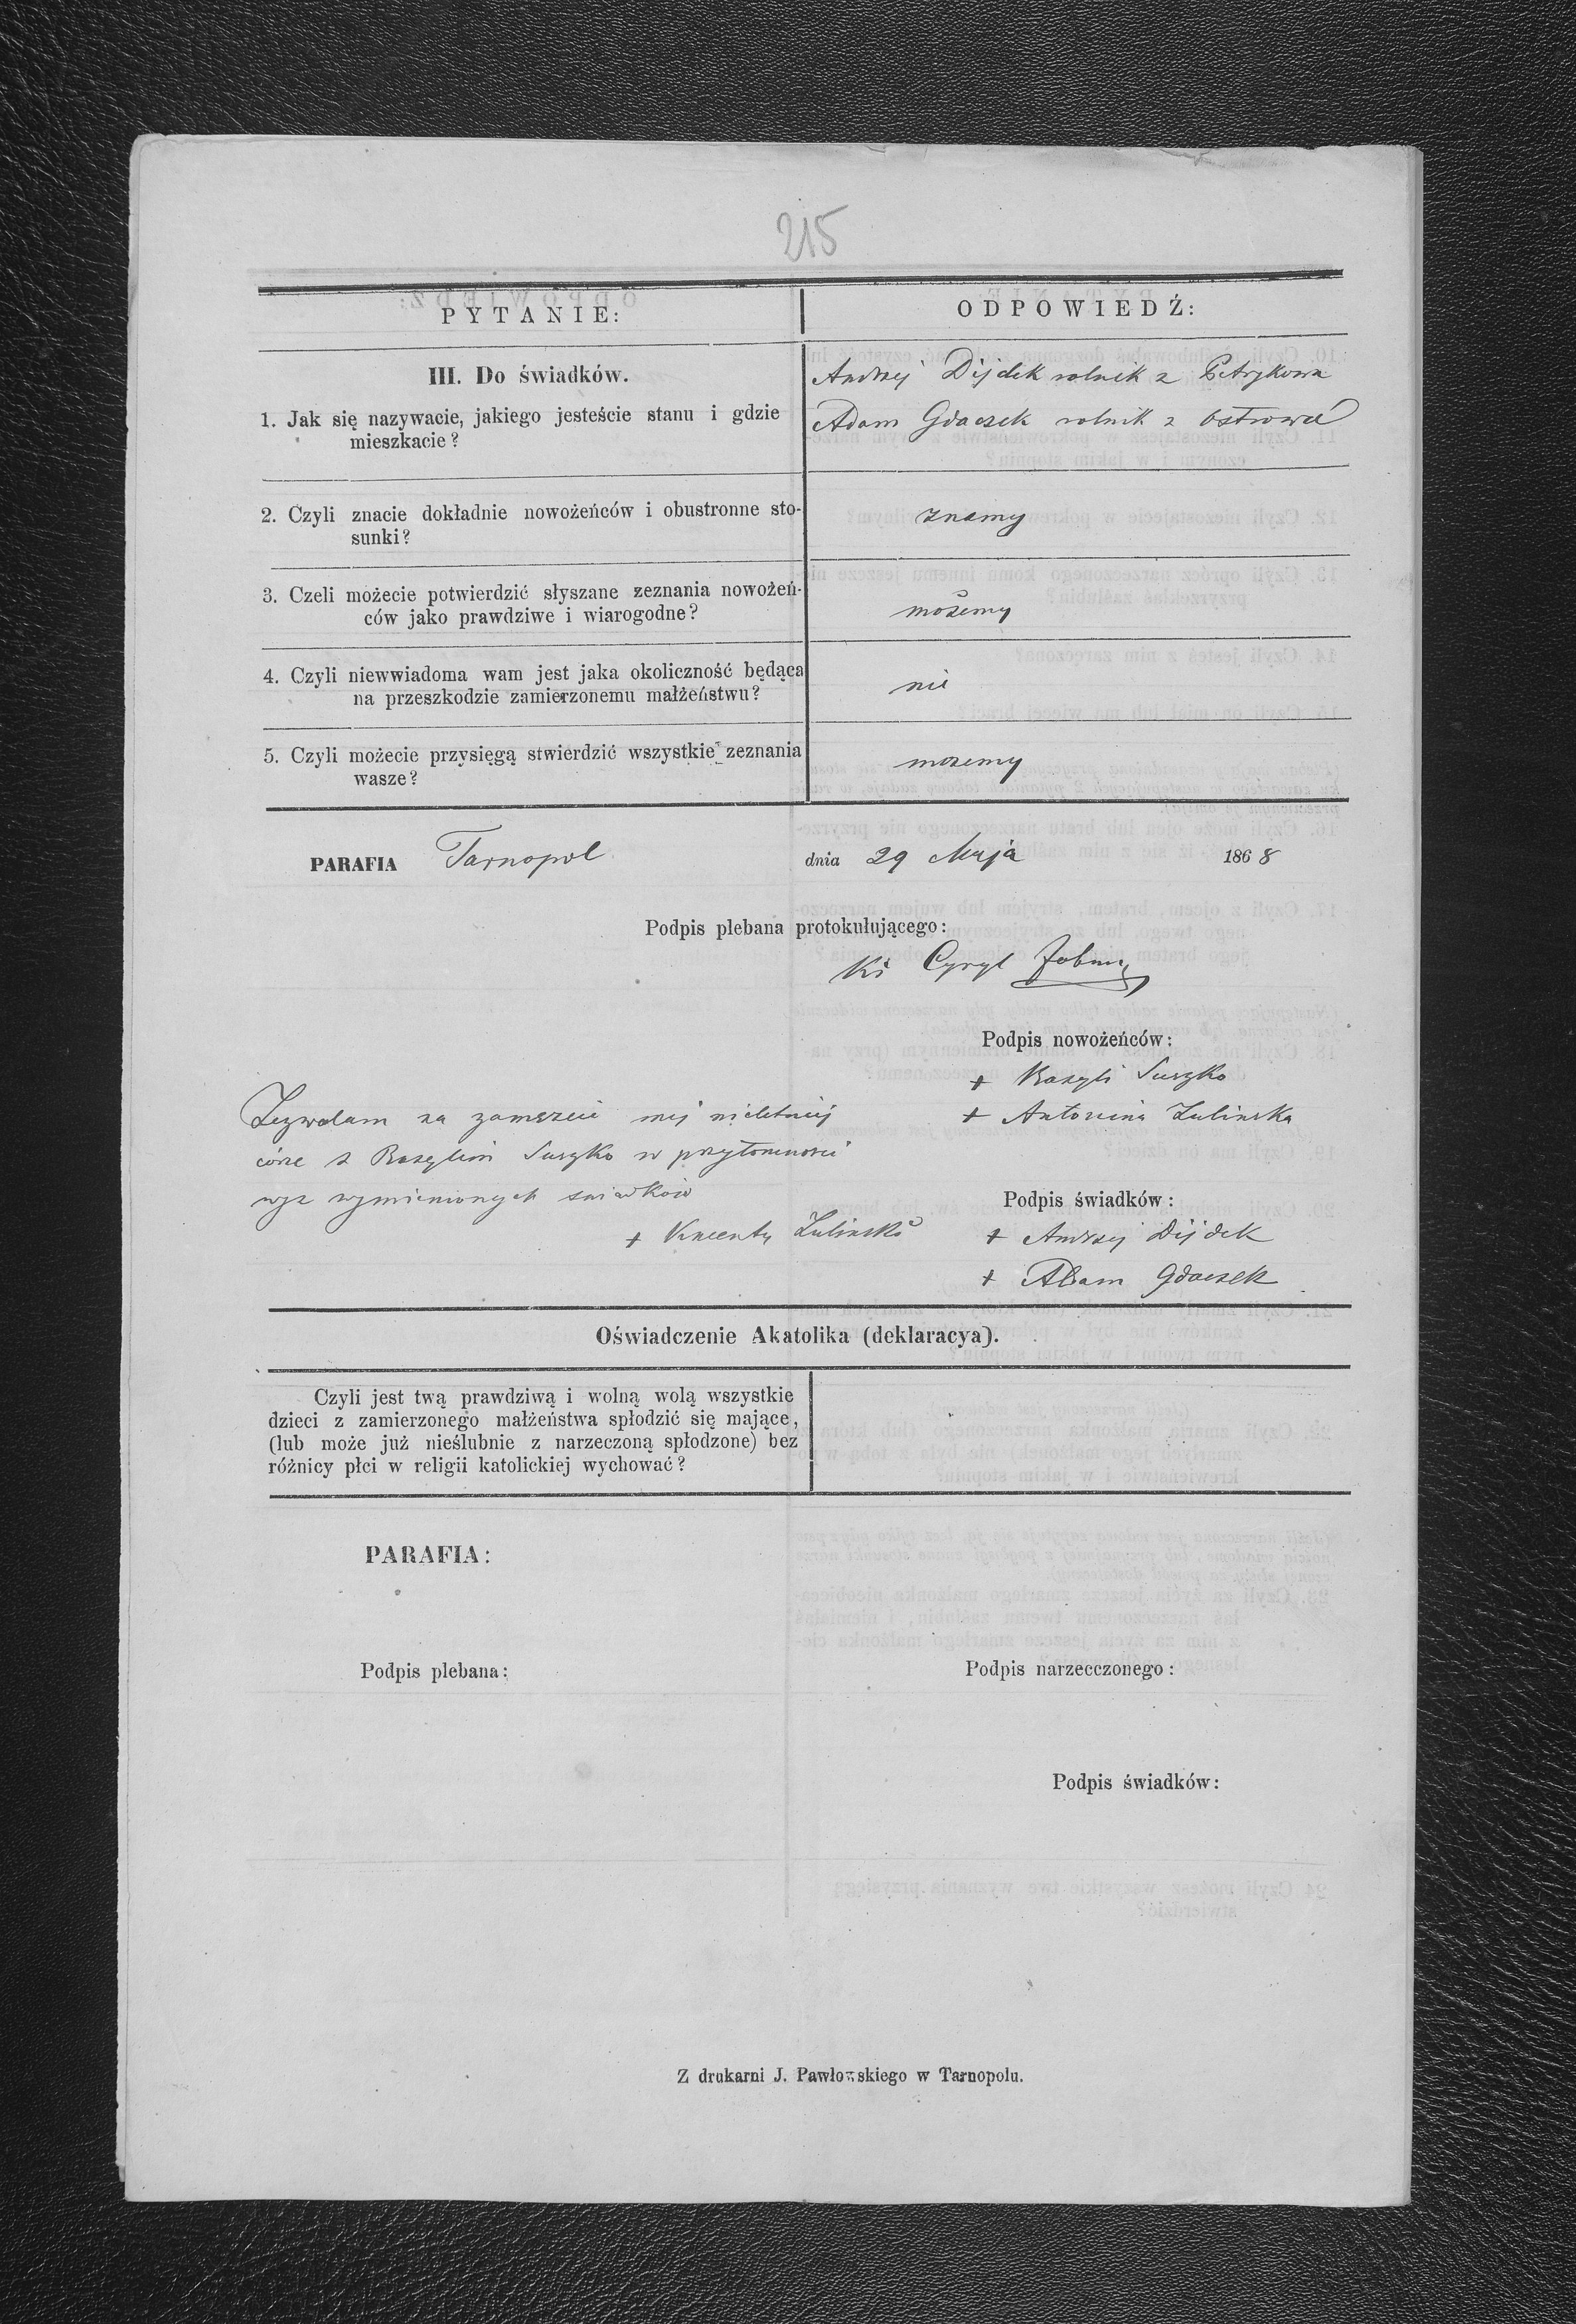 215
PYTANIE:
ODPOWIEDŹ:
III. Do świadków.
1. Jak się nazywacie, jakiego jesteście stanu i gdzie
mieszkacie?
Andrzej Dijdek rolnik z Petrykowa
Adam Gdaczek rolnik z Ostrowa
2. Czyli znacie dokładnie nowożeńców i obustronne sto-
sunki?
znamy
3. Czeli możecie potwierdzić słyszane zeznania nowożeń-
ców jako prawdziwe i wiarogodne?
możemy
4. Czyli niewwiadoma wam jest jaka okoliczność będąca
na przeszkodzie zamierzonemu małżeństwu?
nie
5. Czyli możecie przysięgą stwierdzić wszystkie zeznania
wasze?
możemy
PARAFIA Tarnopol dnia 29 Maja 1868
Podpis plebana protokułującego:
Ks Cyryl
Podpis nowożeńców:
+ Bazyli Suszko
+ Antonina Zulinska
Zezwalam na zamęzcie mej nieletniej
córce z Bazylim Suszko w przytomności
wyz wymienionych swiadków
+ Vincenty Zulinski
Podpis świadków:
+ Andrzej Dijdek
+ Adam Gdaczek
Oświadczenie Akatolika (deklaracya).
Czyli jest twą prawdziwą i wolną wolą wszystkie
dzieci z zamierzonego małżeństwa spłodzić się mające,
(lub może już nieślubnie z narzeczoną spłodzone) bez
różnicy płci w religii katolickiej wychować?
PARAFIA:
Podpis plebana:
Podpis narzecczonego:
Podpis świadków:
Z drukarni J. Pawłowskiego w Tarnopolu.